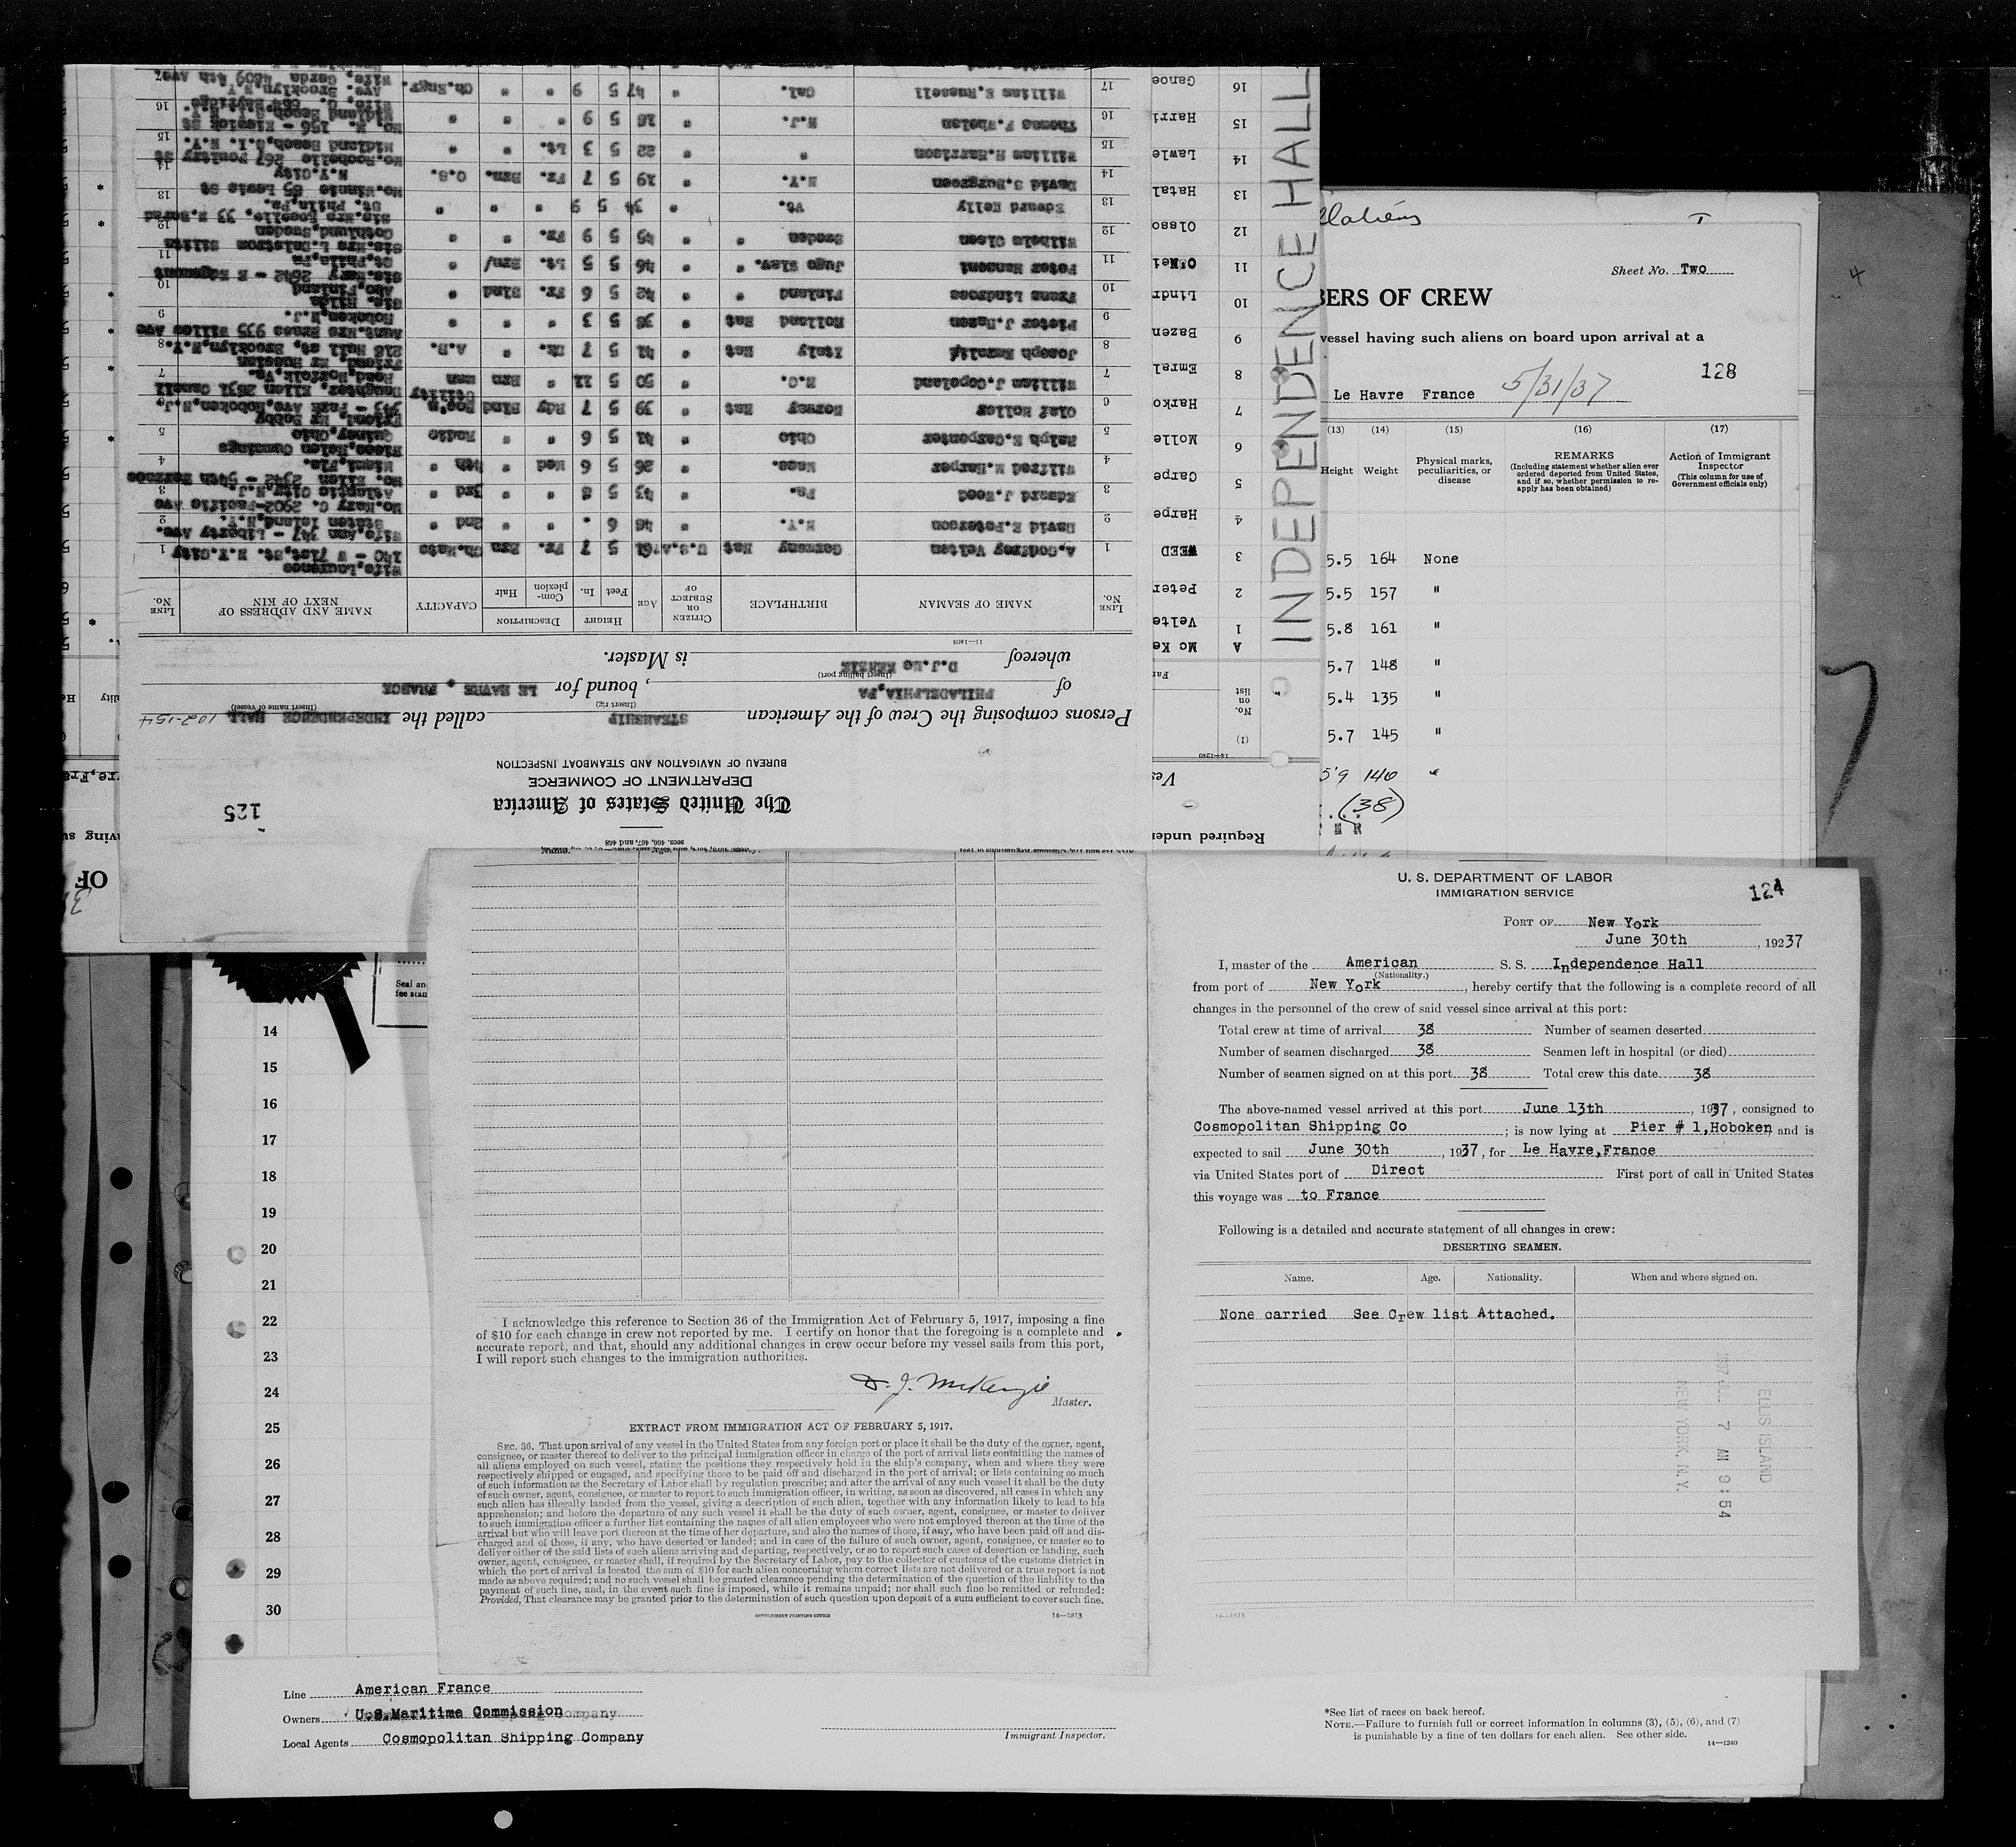 U. S. DEPARTMENT OF LABOR
IMMIGRATION SERVICE
124
PORT OF New York
June 30th, 19237
I, master of the American S. S. Independence Hall
(Nationality.)
from port of New York, hereby certify that the following is a complete record of all
changes in the personnel of the crew of said vessel since arrival at this port:
Total crew at time of arrival 38 Number of seamen deserted
Number of seamen discharged 38 Seamen left in hospital (or died)
Number of seamen signed on at this port 38 Total crew this date 38
The above-named vessel arrived at this port June 13th, 1937, consigned to
Cosmopolitan Shipping Co ; is now lying at Pier # 1,Hoboken and is
expected to sail June 30th, 1937, for Le Havre,France
via United States port of Direct First port of call in United States
this voyage was to France
Following is a detailed and accurate statement of all changes in crew:
DESERTING SEAMEN.
Name. Age. Nationality. When and where signed on.
None carried See Crew list Attached.
ELLIS ISLAND
7 AM 9:54
NEW YORK, N.Y.
14—1613
I acknowledge this reference to Section 36 of the Immigration Act of February 5, 1917, imposing a fine
of $10 for each change in crew not reported by me. I certify on honor that the foregoing is a complete and
accurate report, and that, should any additional changes in crew occur before my vessel sails from this port,
I will report such changes to the immigration authorities.
D. J. McKenzie
Master.
EXTRACT FROM IMMIGRATION ACT OF FEBRUARY 5, 1917.
SEC. 36. That upon arrival of any vessel in the United States from any foreign port or place it shall be the duty of the owner, agent,
consignee, or master thereof to deliver to the principal immigration officer in charge of the port of arrival lists containing the names of
all aliens employed on such vessel, stating the positions they respectively hold in the ship's company, when and where they were
respectively shipped or engaged, and specifying those to be paid off and discharged in the port of arrival; or lists containing so much
of such information as the Secretary of Labor shall by regulation prescribe; and after the arrival of any such vessel it shall be the duty
of such owner, agent, consignee, or master to report to such immigration officer, in writing, as soon as discovered, all cases in which any
such alien has illegally landed from the vessel, giving a description of such alien, together with any information likely to lead to his
apprehension; and before the departure of any such vessel it shall be the duty of such owner, agent, consignee, or master to deliver
to such immigration officer a further list containing the names of all alien employees who were not employed thereon at the time of the
arrival but who will leave port thereon at the time of her departure, and also the names of those, if any, who have been paid off and dis-
charged and of those, if any, who have deserted or landed; and in case of the failure of such owner, agent, consignee, or master so to
deliver either of the said lists of such aliens arriving and departing, respectively, or so to report such cases of desertion or landing, such
owner, agent, consignee, or master shall, if required by the Secretary of Labor, pay to the collector of customs of the customs district in
which the port of arrival is located the sum of $10 for each alien concerning whom correct lists are not delivered or a true report is not
made as above required; and no such vessel shall be granted clearance pending the determination of the question of the liability to the
payment of such fine, and, in the event such fine is imposed, while it remains unpaid; nor shall such fine be remitted or refunded:
Provided, That clearance may be granted prior to the determination of such question upon deposit of a sum sufficient to cover such fine.
GOVERNMENT PRINTING OFFICE 14—1613
Sheet No. Two
BERS OF CREW
vessel having such aliens on board upon arrival at a
128
Le Havre France 5/31/37
(13) (14) (15) (16) (17)
Height Weight Physical marks, peculiarities, or disease
REMARKS
(Including statement whether alien ever
ordered deported from United States,
and if so, whether permission to re-
apply has been obtained)
Action of Immigrant
Inspector
(This column for use of
Government officials only)
5.5 164 None
5.5 157 "
5.8 161 "
5.7 148 "
5.4 135 "
5.7 145 "
5'9 140 "
(38)
INDEPENDENCE HALL
Required under
(1)
No. on list
A Mc Ke
1 Velte
2 Peter
3 WEED
4 Harpe
5 Carpe
6 Molle
7 Harko
8 Emral
9 Bazen
10 Lindr
11 O'Nei
12 Olsso
13 Hatal
14 Lawle
15 Harri
16 Ganoe
125
The United States of America
DEPARTMENT OF COMMERCE
BUREAU OF NAVIGATION AND STEAMBOAT INSPECTION
Persons composing the Crew of the American STEAMSHIP called the INDEPENDENCE HALL 102-154
(Insert rig) (Insert name of vessel)
of PHILADELPHIA,PA, bound for LE HAVRE, FRANCE
(Insert hailing port)
whereof D.J.Mc KENZIE is Master.
11—1408
LINE No. NAME OF SEAMAN BIRTHPLACE CITIZEN OR SUBJECT OF AGE HEIGHT Feet In. DESCRIPTION Com-plexion Hair CAPACITY NAME AND ADDRESS OF NEXT OF KIN LINE No.
1 A.Godfrey Velten Germany Nat U.S.A. 61 5 7 Fr. Brn Ch.Mate Wife,Laurence 140 - W 71st,St. N.Y.City 1
2 David E.Peterson N.Y. " 48 6 " " 2nd " Wife,Ann 347 - Liberty Ave. Staten Island,N.Y. 2
3 Edward J.Weed Pa. " 43 5 8 " " 3rd " Mo.Mary C. 2902-Pacific Ave Atlantic City,N.J. 3
4 Wilfred M.Harper Mass. " 26 5 6 Med " 4th " Mo. Ellen 2342 - 54th Terrace Miami,Fla. 4
5 Ralph E.Carpenter Ohio " 41 5 6 " " Radio Niece,Helen Cummings Quincy,Ohio 5
6 Olaf Moller Norway Nat " 39 5 7 Rdy Blnd Bos'n Friend, Mr Bobby Park Ave,Hoboken,N.J. 6
7 William J.Copeland N.C. " 50 5 11 " Brn Utility man Daughter, Ellen Road,Norfolk,Va. 7
8 Joseph Italy Nat " 41 5 7 Dk. " A.B. Friend, 218 Hull st, Brooklyn,N.Y. 8
9 Pieter J. Holland Nat " 38 5 3 " " " Aunt.Mrs 935 Willow Ave Hoboken,N.J. 9
10 Frans Lindroos Finland " " 42 5 6 Fr. Blnd " Sis. Hilda Abo,Finland 10
11 Peter Jugo Slav. " " 46 5 5 Lt. Brn " Sis.Mary 2642 - E Edgemont St,Phila,Pa. 11
12 Wilhelm Olsen Sweden " " 45 5 9 Fr. " " Gothlund,Sweden 12
13 Edward Kelly Vt. " 34 5 9 " " " St. Phila,Pa. 13
14 David S.Burgreen N.Y. " 19 5 7 Fr. Brn. O.S. Mo.Minnie 65 Lewis St N.Y.City 14
15 William H.Harrison " " 22 5 3 Lt. " " Mo.Rochelle 267 Poultry St Midland Beach,S.I. N.Y. 15
16 Thomas F.Whelan N.J. " 18 5 9 " " " Mo. M. 156 - St 16
17 William E.Russell Cal. " 47 5 9 " " Ch.Engr. Ave. Brooklyn,N.Y. 17
Seal an
fee stan
14
15
16
17
18
19
20
21
22
23
24
25
26
27
28
29
30
Line American France
Owners U.S.Maritime Commission
Local Agents Cosmopolitan Shipping Company
Immigrant Inspector.
*See list of races on back hereof.
NOTE.—Failure to furnish full or correct information in columns (3), (5), (6), and (7)
is punishable by a fine of ten dollars for each alien. See other side.
14—1240